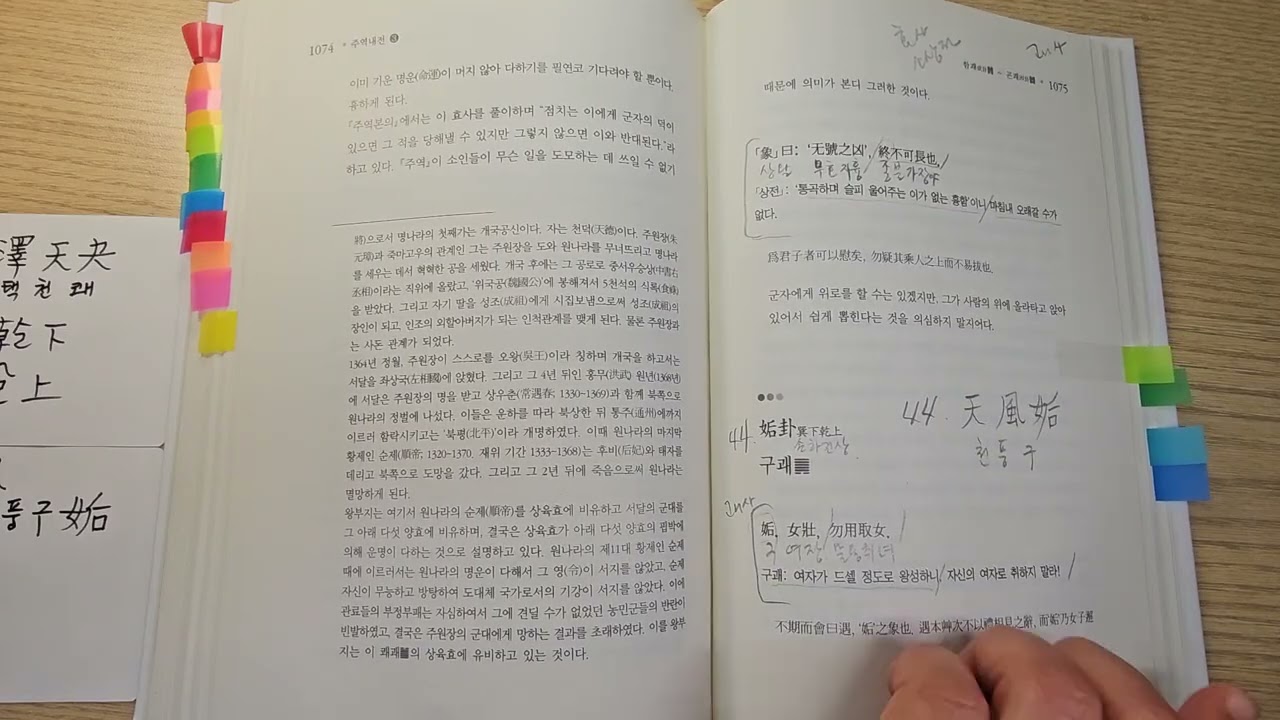 澤天夬
택천쾌
乾下
上
풍구姤
1074 * 주역내전 ❸
이미 기운 명운(命運)이 머지 않아 다하기를 필연코 기다려야 할 뿐이다.
흉하게 된다.
『주역본의』에서는 이 효사를 풀이하며 “점치는 이에게 군자의 덕이
있으면 그 적을 당해낼 수 있지만 그렇지 않으면 이와 반대된다.”라
하고 있다. 『주역』이 소인들이 무슨 일을 도모하는 데 쓰일 수 없기
將)으로서 명나라의 첫째가는 개국공신이다. 자는 천덕(天德)이다. 주원장(朱
元璋)과 죽마고우의 관계인 그는 주원장을 도와 원나라를 무너뜨리고 명나라
를 세우는 데서 혁혁한 공을 세웠다. 개국 후에는 그 공로로 중서우승상(中書右
丞相)이라는 직위에 올랐고, ‘위국공(魏國公)’에 봉해져서 5천석의 식록(食祿)
을 받았다. 그리고 자기 딸을 성조(成祖)에게 시집보냄으로써 성조(成祖)의
장인이 되고 인조의 외할아버지가 되는 인척관계를 맺게 된다. 물론 주원장과
는 사돈 관계가 되었다.
1364년 정월, 주원장이 스스로를 오왕(吳王)이라 칭하며 개국을 하고서는
서달을 좌상국(左相國)에 앉혔다. 그리고 그 4년 뒤인 홍무(洪武) 원년(1368년)
에 서달은 주원장의 명을 받고 상우춘(常遇春; 1330~1369)과 함께 북쪽으로
원나라의 정벌에 나섰다. 이들은 운하를 따라 북상한 뒤 통주(通州)에까지
이르러 함락시키고는 ‘북평(北平)’이라 개명하였다. 이때 원나라의 마지막
황제인 순제(順帝; 1320~1370. 재위 기간 1333~1368)는 후비(后妃)와 태자를
데리고 북쪽으로 도망을 갔다. 그리고 그 2년 뒤에 죽음으로써 원나라는
멸망하게 된다.
왕부지는 여기서 원나라의 순제(順帝)를 상육효에 비유하고 서달의 군대를
그 아래 다섯 양효에 비유하며, 결국은 상육효가 아래 다섯 양효의 핍박에
의해 운명이 다하는 것으로 설명하고 있다. 원나라의 제11대 황제인 순제
때에 이르러서는 원나라의 명운이 다해서 그 영(令)이 서지를 않았고, 순제
자신이 무능하고 방탕하여 도대체 국가로서의 기강이 서지를 않았다. 이에
관료들의 부정부패는 자심하여서 그에 견딜 수가 없었던 농민군들의 반란이
빈발하였고, 결국은 주원장의 군대에게 망하는 결과를 초래하였다. 이를 왕부
지는 이 쾌괘䷪의 상육효에 유비하고 있는 것이다.
효사
소상전
괘사
1075
때문에 의미가 본디 그러한 것이다.
「象」曰: ‘无號之凶’, 終不可長也.
상왈 무호지흉 종불가장야
「상전」: ‘통곡하며 슬피 울어주는 이가 없는 흉함’이니 마침내 오래갈 수가
없다.
爲君子者可以慰矣, 勿疑其乘人之上而不易拔也.
군자에게 위로를 할 수는 있겠지만, 그가 사람의 위에 올라타고 앉아
있어서 쉽게 뽑힌다는 것을 의심하지 말지어다.
44. 天風姤
천풍구
44. 姤卦 巽下乾上
손하건상
구괘䷫
괘사
姤, 女壯, 勿用取女.
구 여장 물용취녀
구괘: 여자가 드셀 정도로 왕성하니, 자신의 여자로 취하지 말라!
不期而會曰遇, ‘姤’之象也. 遇本艸次不以禮相見之辭, 而‘姤’乃女子邂